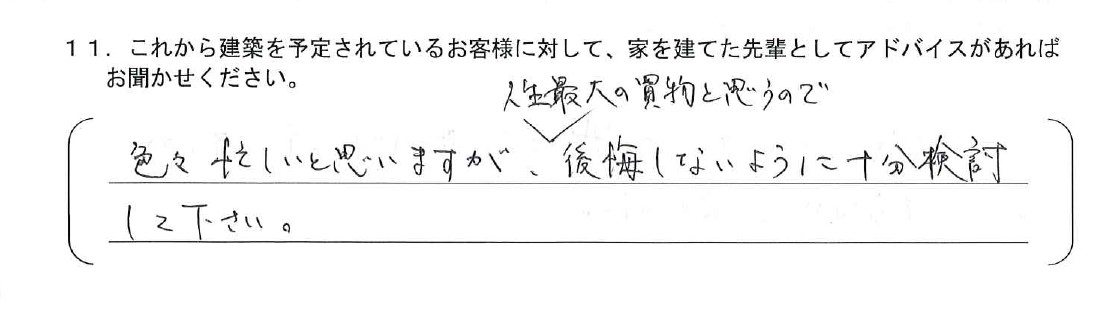 11．これから建築を予定されているお客様に対して、家を建てた先輩としてアドバイスがあれば
お聞かせください。
人生最大の買物と思うので
色々忙しいと思いますが、後悔しないように十分検討
して下さい。